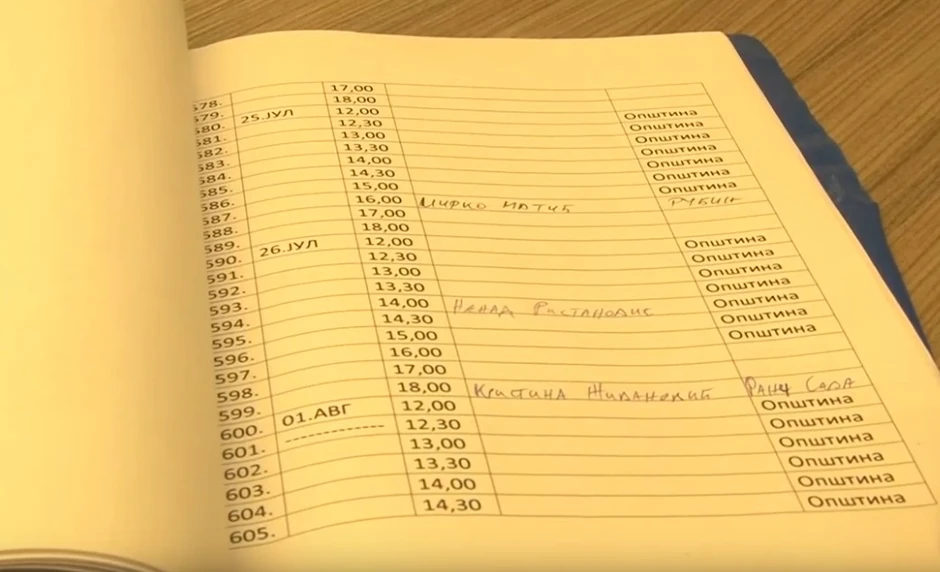 578. 17,00
579. 18,00
580. 25.ЈУЛ 12,00 Општина
581. 12,30 Општина
582. 13,00 Општина
583. 13,30 Општина
584. 14,00 Општина
585. 14,30 Општина
586. 15,00 Општина
587. 16,00 Мирко Матић РУБИН
588. 17,00
589. 18,00
590. 26.ЈУЛ 12,00 Општина
591. 12,30 Општина
592. 13,00 Општина
593. 13,30 Општина
594. 14,00 Ненад Ристановић Општина
595. 14,30 Општина
596. 15,00 Општина
597. 16,00
598. 17,00
599. 18,00 Кристина Живановић Ранч Сава
600. 01.АВГ 12,00 Општина
601. -------------- 12,30 Општина
602. 13,00 Општина
603. 13,30 Општина
604. 14,00 Општина
605. 14,30 Општина